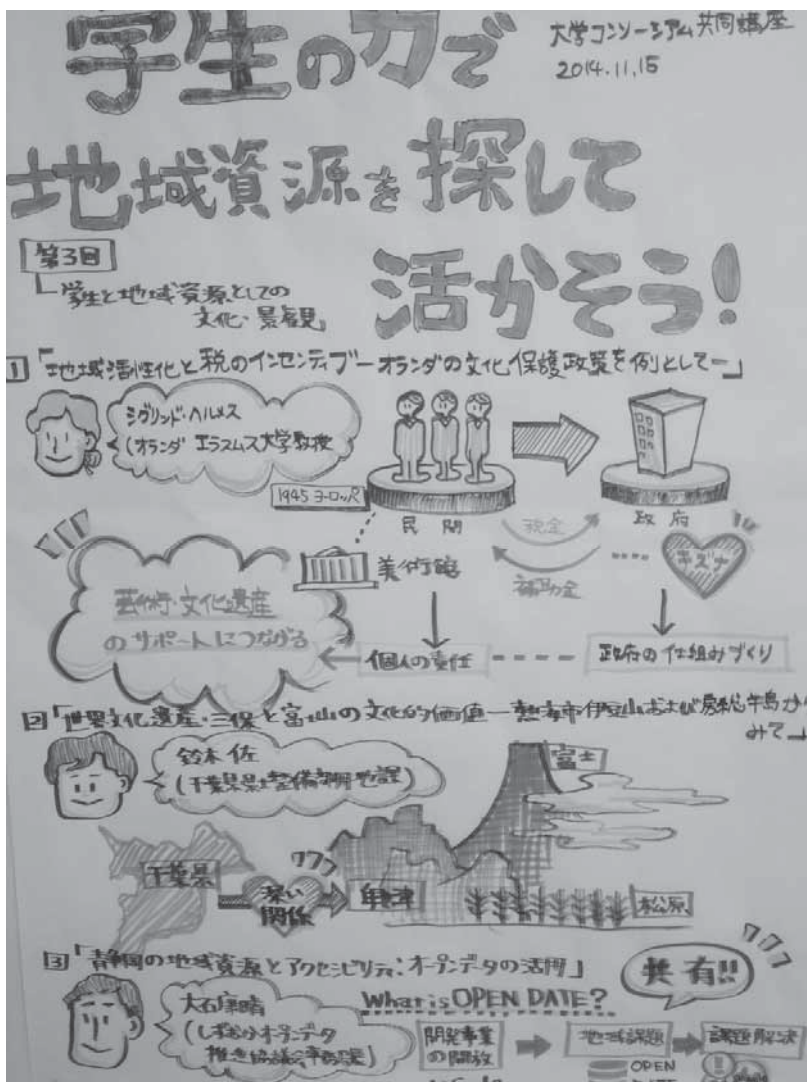 学生の力で
大学コンソーシアム共同講座
2014.11.15
地域資源を探して
活かそう!
第3回
学生と地域資源としての
文化・景観
1「地域活性化と税のインセンティブーオランダの文化保護政策を例としてー」
シグリンド・ヘルメス
(オランダ エラスムス大学教授
1945 ヨーロッパ
民間
政府
税金
補助金
キズナ
美術館
芸術・文化遺産
のサポートにつながる
個人の責任
政府の仕組みづくり
2「世界文化遺産・三保と富士山の文化的価値ー熱海市伊豆山および房総半島から
みて」
鈴木 佐
(千葉県県土整備部用地課)
富士
千葉県
深い
関係
松原
3「静岡の地域資源とアクセシビリティ:オープンデータの活用」
共有!!
What is OPEN DATE?
大石康晴
(しずおかオープンデータ
推進協議会事務
開発事業
の開放
地域課題
課題解決
OPEN